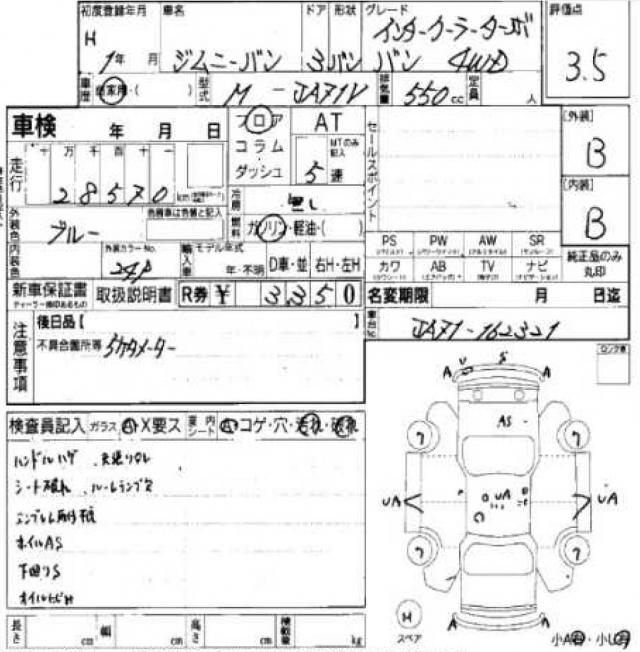 初度登録年月 車名 ドア 形状 グレード 評価点
H 1年 月 ジムニーバン 3 バン インタークーラーターボ
バン 4WD
3.5
車歴 自家用・( ) 型式 M-JA71V 排気量 550cc 定員 人
車検 年 月 日 フロア AT セールスポイント [外装]
コラム MTのみ記入 B
走行 十 万 千 百 十 一 ダッシュ 5速
28570 km 冷房 無し [内装]
外装色 ブルー 色替車は色替と記入 燃料 ガソリン・軽油・( ) B
内装色 外装カラーNo. 24P 輸入車 モデル年式 年・不明 D車・並 右H・左H
PS PW AW SR 純正品のみ丸印
カワ AB TV ナビ
新車保証書 取扱説明書 R券 ¥ 3350 名変期限 月 日迄
ディーラー捺印あるもの
注意事項 後日品 [ ] 車台No. JA71-162321
不具合箇所等 5ケタメーター
ロング車
検査員記入 ガラス A・X要ス 室内シート A・コゲ・穴・汚れ・破れ
ハンドルハゲ 天張りOレ
シート破れ ルームランプ欠
ホイルAS
下回りS
A U S A
AS
ワ ワ
UA UA UA
ワ ワ
H
スペア A A 小A有・小U有
長さ cm 幅 cm 高さ cm 積載量 kg